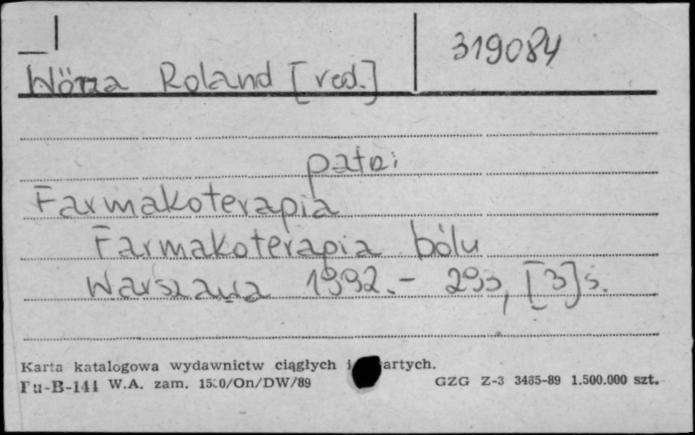 319084
Wörza Roland [red.]
patrz:
Farmakoterapia
Farmakoterapia bólu
Warszawa 1992. - 293, [3] s.
Karta katalogowa wydawnictw ciągłych i artych.
Pu-B-141 W.A. zam. 15 0/On/DW/89 GZG Z-3 3485-89 1.500.000 szt.